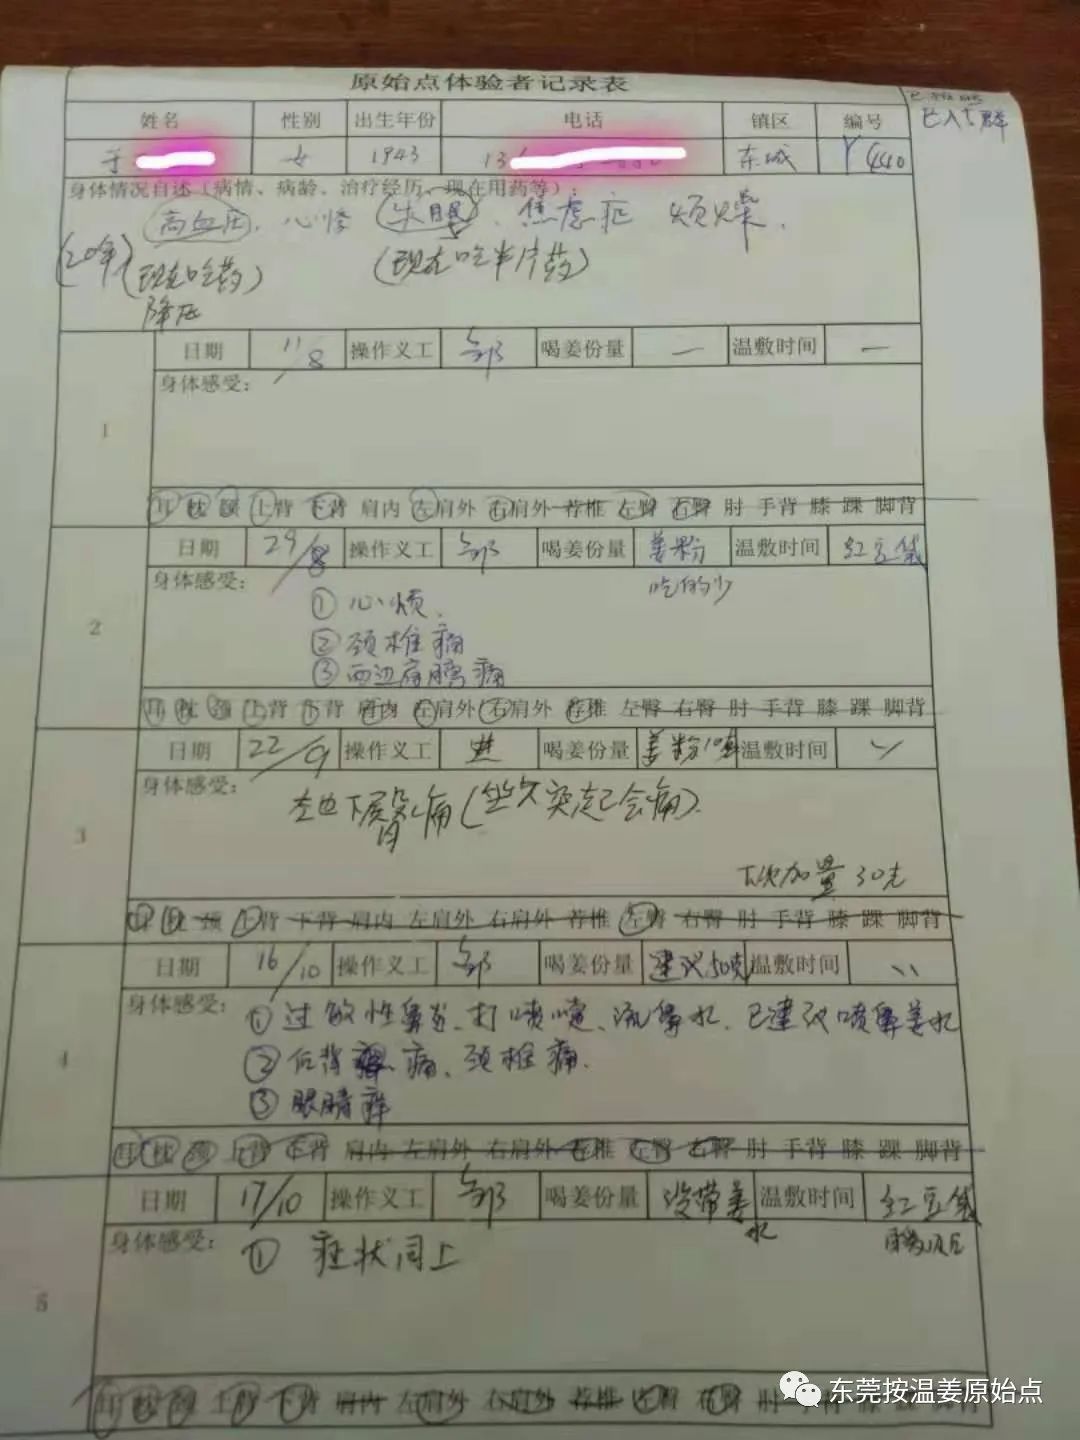 原始点体验者记录表
已入群
姓名 性别 出生年份 电话 镇区 编号
于 女 1943 13 东城 Y440
身体情况自述(病情、病龄、治疗经历、现在用药等):
高血压、心悸 失眠、焦虑症 烦燥、
(20年) (现在吃药) (现在吃半片药)
降压
1
日期 11/8 操作义工 邹 喝姜份量 — 温敷时间 —
身体感受:
耳 枕 颈 上背 下背 肩内 左肩外 右肩外 荐椎 左臀 右臀 肘 手背 膝 踝 脚背
2
日期 29/8 操作义工 邹 喝姜份量 姜粉 温敷时间 红豆袋
吃的少
身体感受:
① 心烦、
② 颈椎痛
③ 两边肩膀痛
耳 枕 颈 上背 下背 肩内 左肩外 右肩外 荐椎 左臀 右臀 肘 手背 膝 踝 脚背
3
日期 22/9 操作义工 喝姜份量 姜粉10 温敷时间
身体感受:
左边下臀痛(坐久突起会痛)
下次加量30克
耳 枕 颈 上背 下背 肩内 左肩外 右肩外 荐椎 左臀 右臀 肘 手背 膝 踝 脚背
4
日期 16/10 操作义工 邹 喝姜份量 建议50克 温敷时间
身体感受:
① 过敏性鼻炎、打喷嚏、流鼻水、已建议喷鼻姜水
② 后背 痛、颈椎痛.
③ 眼睛痒
耳 枕 颈 上背 下背 肩内 左肩外 右肩外 荐椎 左臀 右臀 肘 手背 膝 踝 脚背
5
日期 17/10 操作义工 邹 喝姜份量 没带姜水 温敷时间 红豆袋
身体感受:
① 症状同上
耳 枕 颈 上背 下背 肩内 左肩外 右肩外 荐椎 左臀 右臀 肘 手背 膝 踝 脚背
东莞按温姜原始点